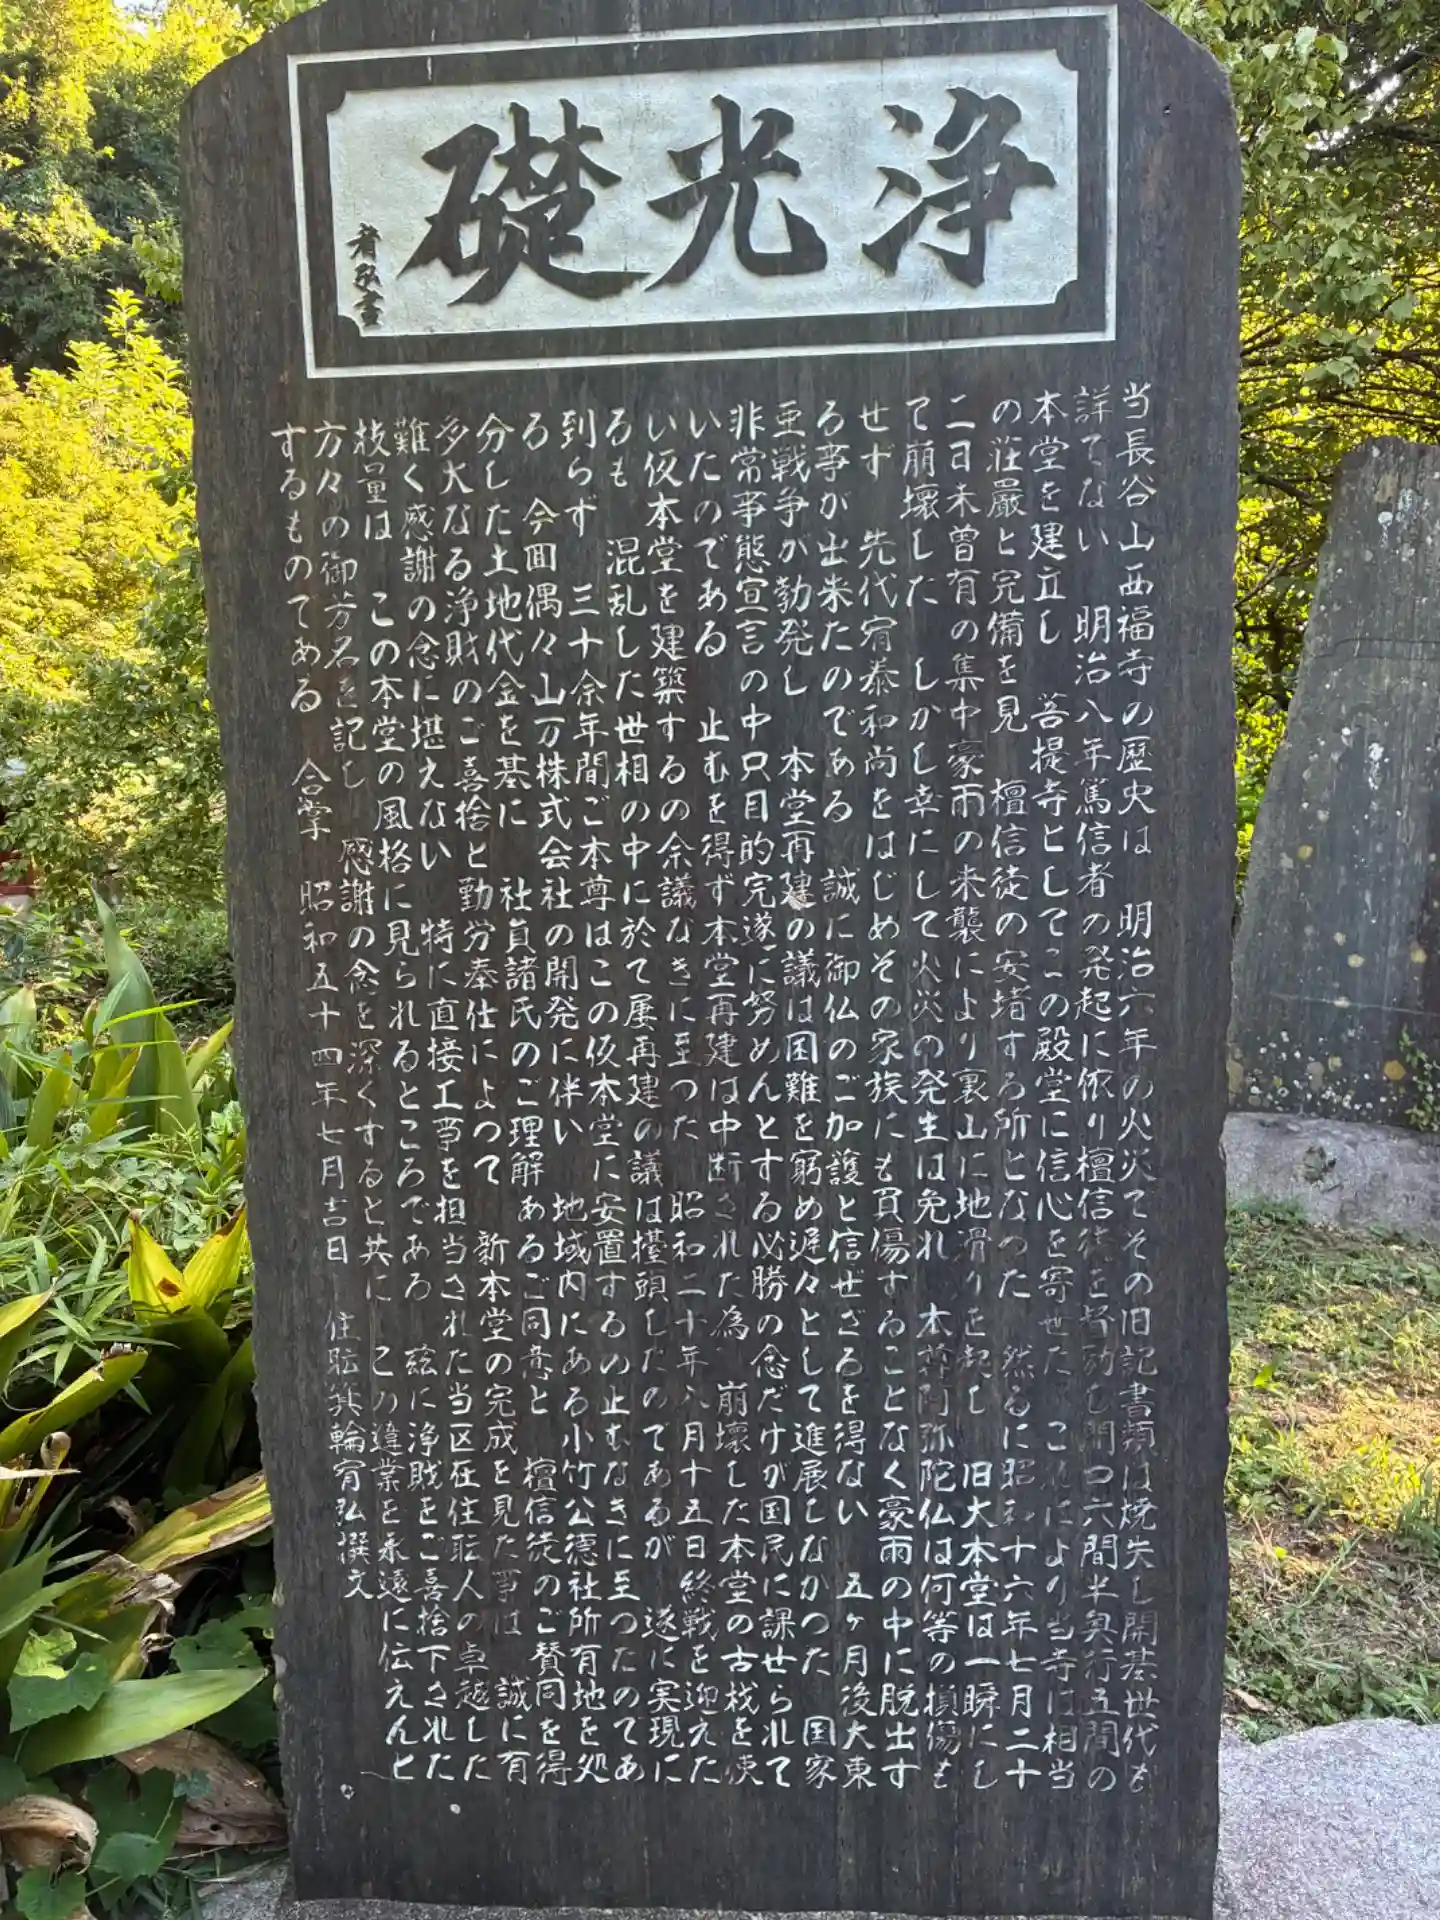 浄光礎
宥弘書
当長谷山西福寺の歴史は 明治六年の火災でその旧記書類は焼失し開基世代も
詳でない 明治八年篤信者の発起に依り檀信徒を督励し間口六間半奥行五間の
本堂を建立し 菩提寺としてこの殿堂に信心を寄せた これにより当寺は相当
の荘厳と完備を見 檀信徒の安堵する所となつた 然るに昭和十六年七月二十
二日未曽有の集中豪雨の来襲により裏山に地滑りを起し 旧大本堂は一瞬にし
て崩壊した しかし幸にして火災の発生は免れ 本尊阿弥陀仏は何等の損傷も
せず 先代宥泰和尚をはじめその家族にも負傷することなく豪雨の中に脱出す
る事が出来たのである 誠に御仏のご加護と信ぜざるを得ない 五ヶ月後大東
亜戦争が勃発し 本堂再建の議は国難を窮め遅々として進展しなかつた 国家
非常事態宣言の中只目的完遂に努めんとする必勝の念だけが国民に課せられて
いたのである 止むを得ず本堂再建は中断された為 崩壊した本堂の古材を使
い仮本堂を建築するの余議なきに至つた 昭和二十年八月十五日終戦を迎えた
るも 混乱した世相の中に於て屡再建の議は擡頭したのであるが 遂に実現に
到らず 三十余年間ご本尊はこの仮本堂に安置するの止むなきに至つたのであ
る 今回偶々山万株式会社の開発に伴い 地域内にある小竹公徳社所有地を処
分した土地代金を基に 社員諸氏のご理解あるご同意と 檀信徒のご賛同を得
多大なる浄財のご喜捨と勤労奉仕によつて 新本堂の完成を見た事は 誠に有
難く感謝の念に堪えない 特に直接工事を担当された当区在住職人の卓越した
技量は この本堂の風格に見られるところである 玆に浄財をご喜捨下された
方々の御芳名を記し 感謝の念を深くすると共に この違業を永遠に伝えんと
するものである 合掌 昭和五十四年七月吉日 住職箕輪宥弘撰文